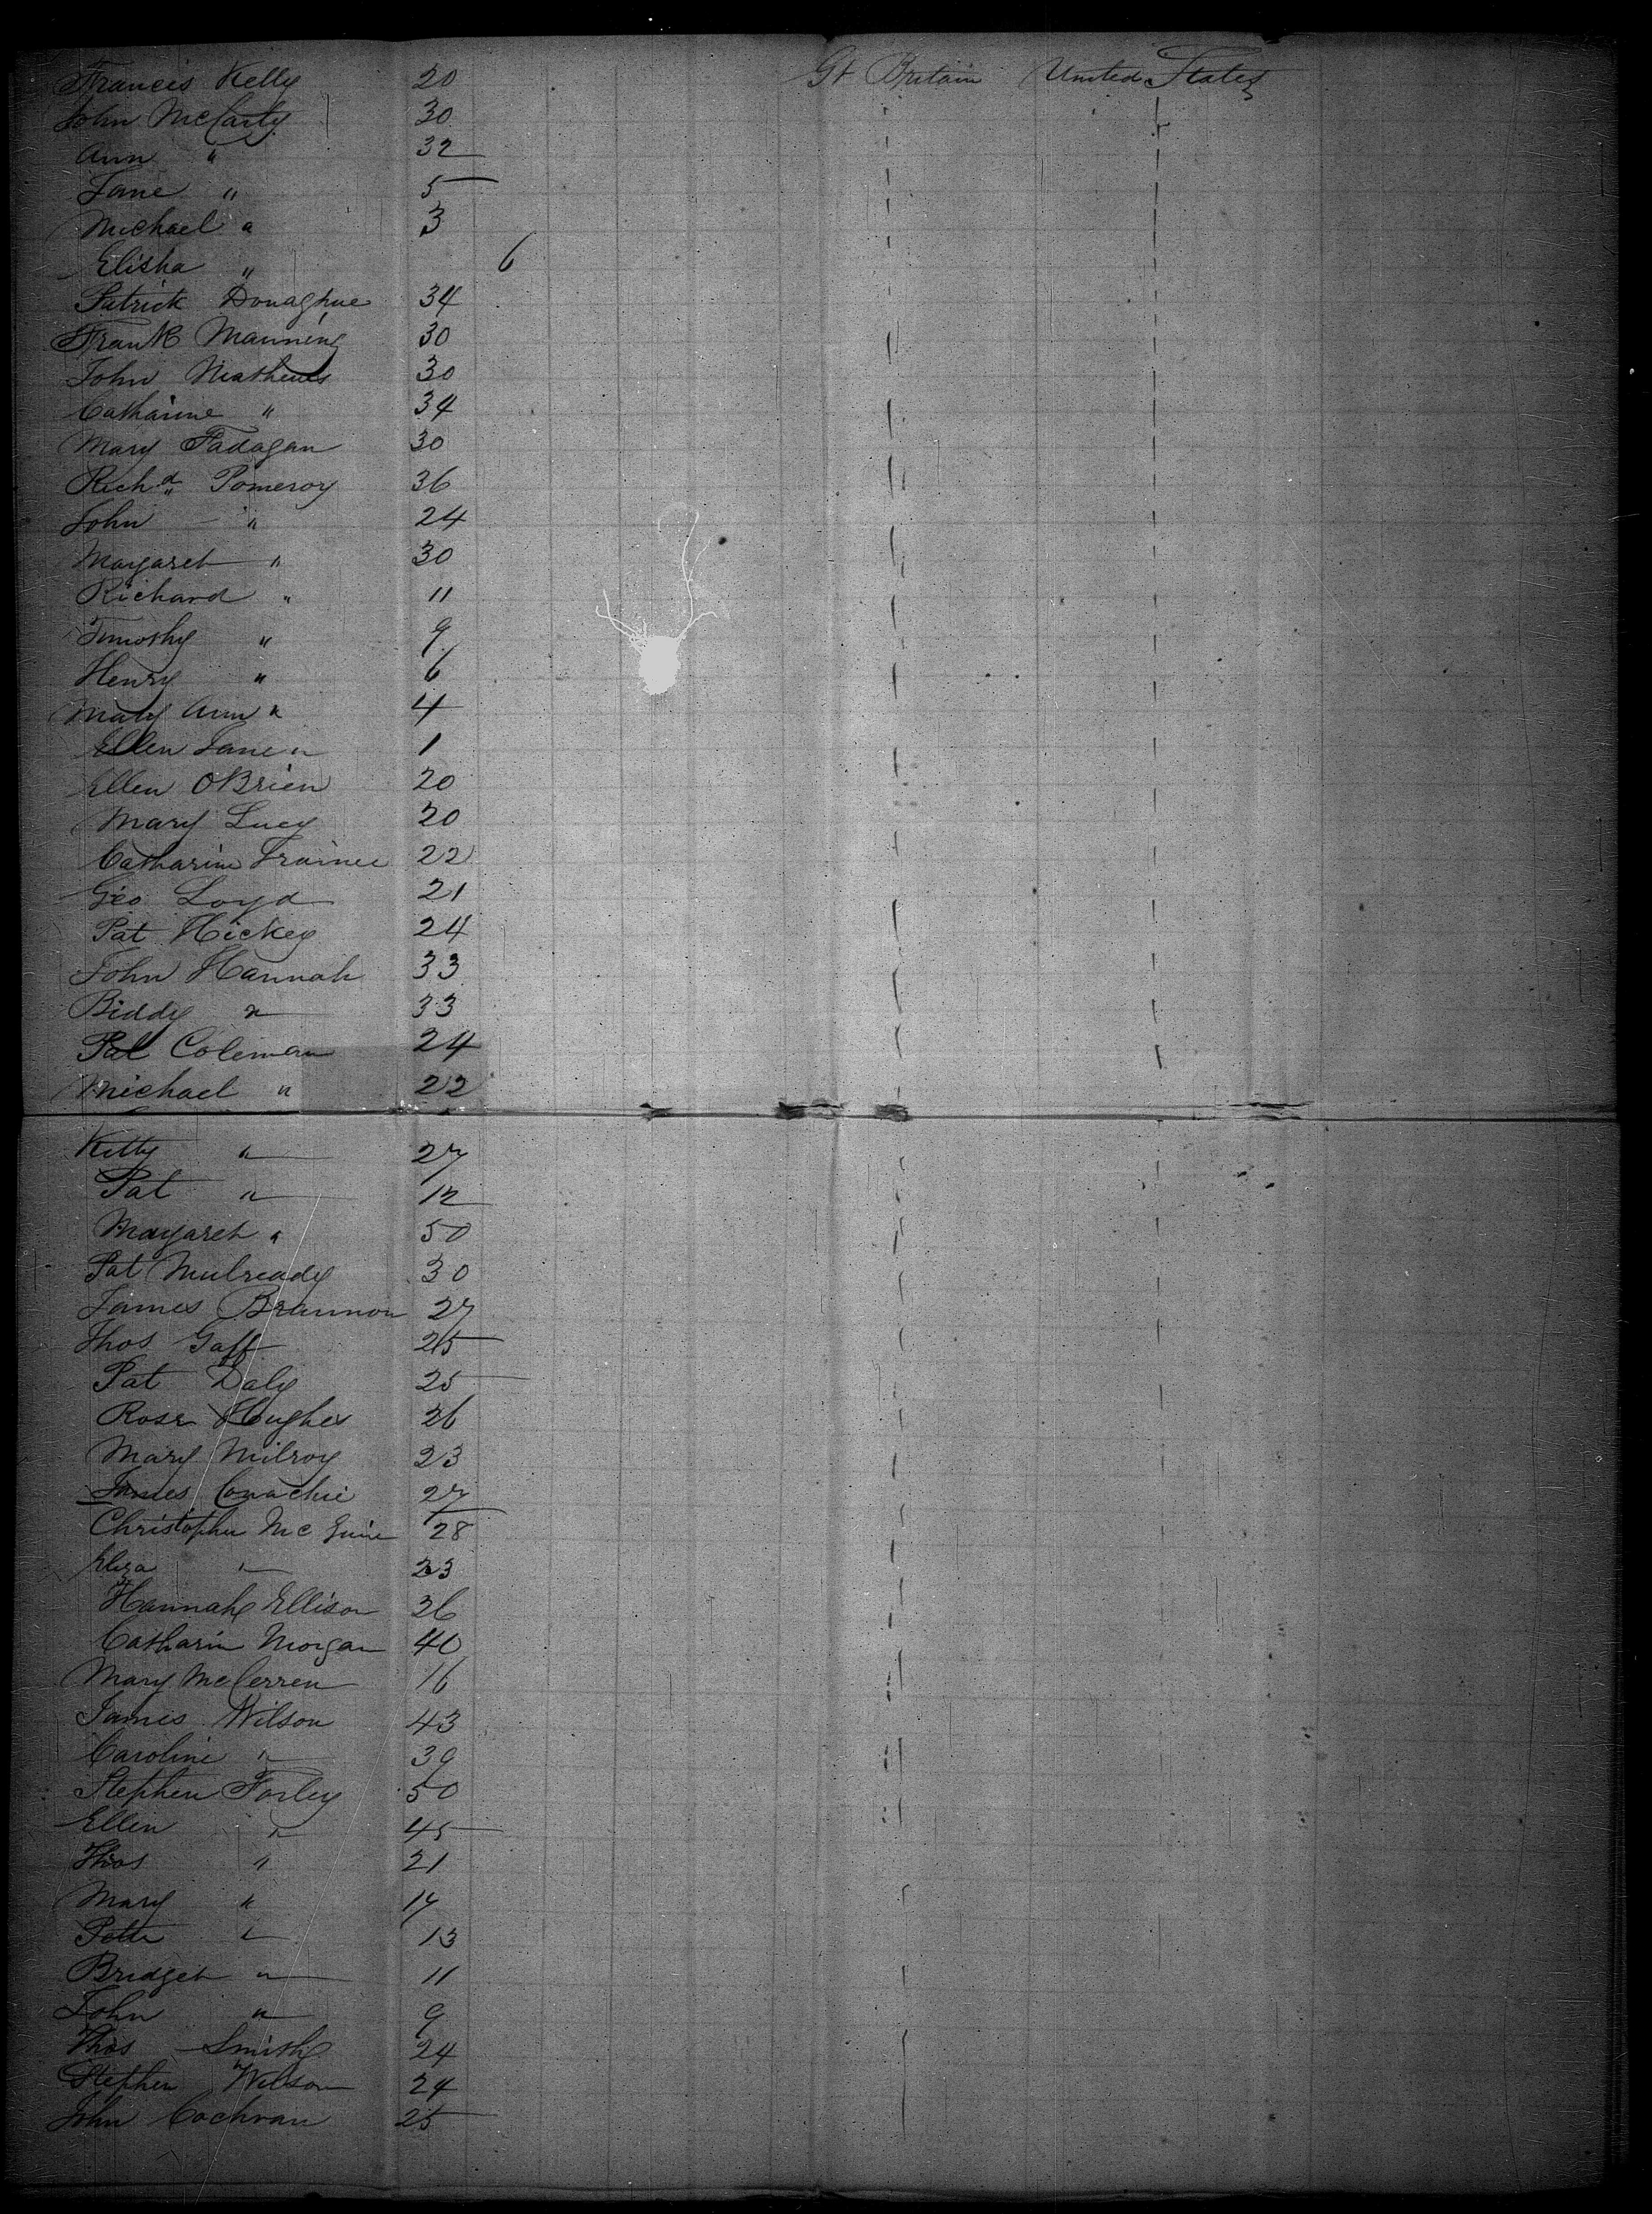 Francis Kelly 20 Gt Britain United States
John McCarty 30
Ann " 32
Jane " 5
Michael " 3
Elisha " 6
Patrick Donaghue 34
Frank Manning 30
John Mathews 30
Catharine " 34
Mary Fadagan 30
Richd Pomeroy 36
John " 24
Margaret " 30
Richard " 11
Timothy " 9
Henry " 6
Mary Ann " 4
Ellen Jane " 1
Ellen OBrien 20
Mary Lucy 20
Catharine 22
Geo Loyd 21
Pat Hickey 24
John Hannah 33
Biddy " 33
Pat Coleman 24
Michael " 22
Kitty " 27
Pat " 12
Margaret " 50
Pat Mulready 30
James Brannon 27
Thos Gaff 25
Pat Daly 25
Rose Hughes 26
Mary Milroy 23
James Conachie 27
Christopher McGuire 28
Eliza " 23
Hannah Ellison 26
Catharin Morgan 40
Mary McCerren 16
James Wilson 43
Caroline " 39
Stephen Forley 50
Ellen " 45
Thos " 21
Mary " 17
" 13
Bridget " 11
John " 9
Thos Smith 24
Stephen Wilson 24
John Cochran 25